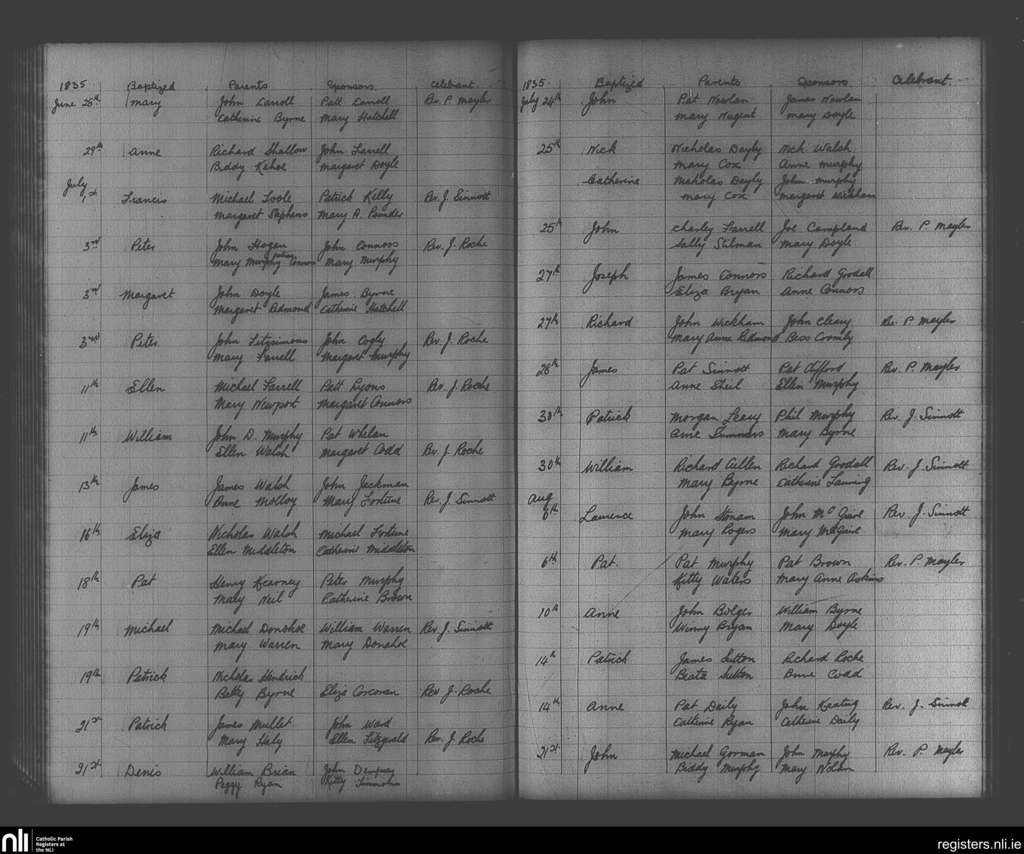 1835 Baptized Parents Sponsors Celebrant
June 28th Mary John Carroll Patt Carroll Rev. P. Mayler
Catherine Byrne Mary Hatchell
29th Anne Richard Shallow John Farrell
Biddy Kehoe Margaret Doyle
July
1st Francis Michael Toole Patrick Kelly Rev. J. Sinnott
Margaret Stephens Mary A.
3rd Peter John Hogan John Connors Rev. J. Roche
Mary Murphy Connors Mary Murphy
3rd Margaret John Doyle James Byrne
Margaret Redmond Catherine Hatchell
3rd Peter John Fitzsimons John Cogly Rev. J. Roche
Mary Farrell Margaret Murphy
11th Ellen Michael Farrell Patt Lyons Rev. J. Roche
Mary Newport Margaret Connors
11th William John D. Murphy Pat Whelan
Ellen Walsh Margaret Codd Rev J. Roche
13th James James Walsh John Jeckman
Anne Molloy Mary Fortune Rev. J. Sinnott
16th Eliza Nicholas Walsh Michael Fortune
Ellen Middleton Catherine Middleton
18th Pat Henry Kearney Peter Murphy
Mary Neil Catherine Brown
19th Michael Michael Donohoe William Warren Rev. J. Sinnott
Mary Warren Mary Donohoe
19th Patrick Nicholas Hendrick
Betty Byrne Eliza Corcoran Rev J. Roche
21st Patrick James Mullet John Ward
Mary Haly Ellen Fitzgerald Rev. J. Roche
21st Denis William Brian John Dempsey
Peggy Ryan Kitty
1835 Baptized Parents Sponsors Celebrant
July 24th John Pat Nowlan James Nowlan
Mary Nugent Mary Doyle
25th Nick Nicholas Dayly Nick Walsh
Mary Cox Anne Murphy
Catherine Nicholas Dayly John Murphy
Mary Cox Margaret Wickham
25th John Charley Farrell Joe Campland Rev. P. Mayler
Sally Stilman Mary Doyle
27th Joseph James Connors Richard Goodall
Eliza Bryan Anne Connors
27th Richard John Wickham John Cleary Rev. P. Mayler
Mary Anne Redmond Bess Cormby
28th James Pat Sinnott Pat Clifford Rev. P. Mayler
Anne Sheil Ellen Murphy
30th Patrick Morgan Leary Phil Murphy Rev. J. Sinnott
Anne Summers Mary Byrne
30th William Richard Cullen Richard Goodall Rev. J. Sinnott
Mary Byrne Catherine Lanning
Aug
6th Laurence John Stonam John McGuire Rev. J. Sinnott
Mary Rogers Mary McGuire
6th Pat. Pat Murphy Pat Brown Rev. P. Mayler
Kitty Waters Mary Anne Askins
10th Anne John Bolger William Byrne
Winny Bryan Mary Doyle
14th Patrick James Sutton Richard Roche
Beata Sutton Anne Codd
14th Anne Pat Daily John Keating Rev. J. Sinnott
Catherine Ryan Catherine Daily
21st John Michael Gorman John Murphy Rev. P. Mayler
Biddy Murphy Mary Nolan
nli Catholic Parish
Registers at
the NLI
registers.nli.ie